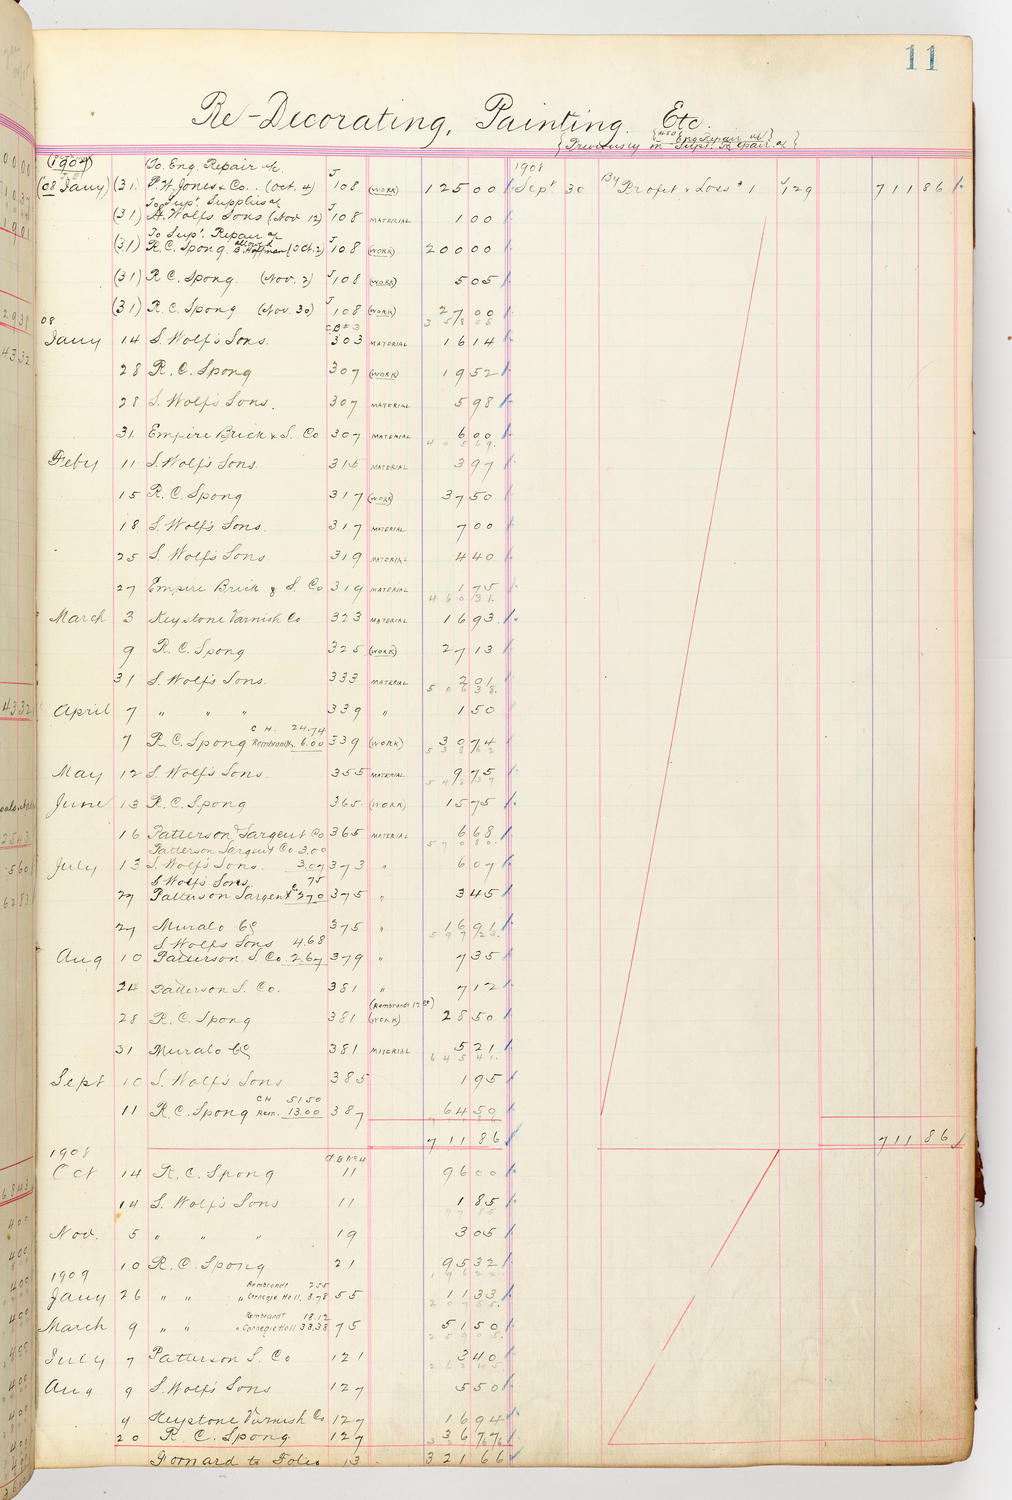 11
Re-Decorating, Painting, Etc.
Previously in Supt. Repair a/c
1907 To Eng. Repair a/c 1908
(08 Jany) (31) P. W. Jones & Co. (Oct. 4) J 108 (WORK) 125 00 Sept 30 By Profit & Loss #1 J 129 711 86
To Sup't. Supplies a/c
(31) S. Wolfs Sons (Nov 12) J 108 MATERIAL 1 00
To Sup't. Repair a/c
(31) R. C. Spong (Oct. 2) J 108 (WORK) 200 00
(31) R C. Spong (Nov. 2) J 108 (WORK) 5 05
(31) R. C. Spong (Nov. 30) J 108 (WORK) 27 00
358 08
08 C.B#3
Jany 14 S. Wolf's Sons. 303 MATERIAL 16 14
28 R. C. Spong 307 (WORK) 19 52
28 S. Wolf's Sons. 307 MATERIAL 5 98
31 Empire Brick & S. Co 307 MATERIAL 6 00
Feby 11 S. Wolf's Sons. 315 MATERIAL 3 97
15 R. C. Spong 317 (WORK) 37 50
18 S. Wolf's Sons. 317 MATERIAL 7 00
25 S. Wolf's Sons. 319 MATERIAL 4 40
27 Empire Brick & S. Co 319 MATERIAL 1 75
460 31
March 3 Keystone Varnish Co 323 MATERIAL 16 93
9 R. C. Spong 325 (WORK) 27 13
31 S. Wolf's Sons. 333 MATERIAL 2 01
506 38
April 7 " " " 339 " 1 50
C. H. 24.74
7 R. C. Spong Rembrandt 6.00 339 (WORK) 30 74
538 62
May 12 S. Wolf's Sons. 355 MATERIAL 9 75
548 37
June 13 R. C. Spong 365 (WORK) 15 75
16 Patterson Sargent Co 365 MATERIAL 6 68
570 80
Patterson Sargent Co 3.00
July 13 S. Wolf's Sons. 3.07 373 " 6 07
S Wolf's Sons. 75
27 Patterson Sargent Co 2.70 375 " 3 45
27 Muralo Co 375 " 16 91
597 23
S Wolf's Sons 4.68
Aug 10 Patterson S. Co. 2.67 379 " 7 35
24 Patterson S. Co. 381 " 7 12
(Rembrandt
28 R. C. Spong 381 (WORK) 28 50
31 Muralo Co 381 MATERIAL 5 21
645 41
Sept 10 S. Wolf's Sons 385 1 95
C H 51 50
11 R. C. Spong Rem. 13.00 387 64 50
711 86 711 86
1908
Oct 14 R. C. Spong 11 96 00
14 S. Wolf's Sons 11 1 85
97 85
Nov. 5 " " " 19 3 05
10 R. C. Spong 21 95 32
196 22
1909 Rembrandt 2.55
Jany 26 " " " Carnegie Hall. 8.78 55 11 33
207 55
Rembrandt 18.12
March 9 " " " Carnegie Hall 33.38 75 51 50
259 05
July 7 Patterson S. Co 121 3 40
262 45
Aug 9 S. Wolf's Sons 127 5 50
9 Keystone Varnish Co 127 16 94
20 R. C. Spong 127 36 77
Forward to Folio 13 321 66